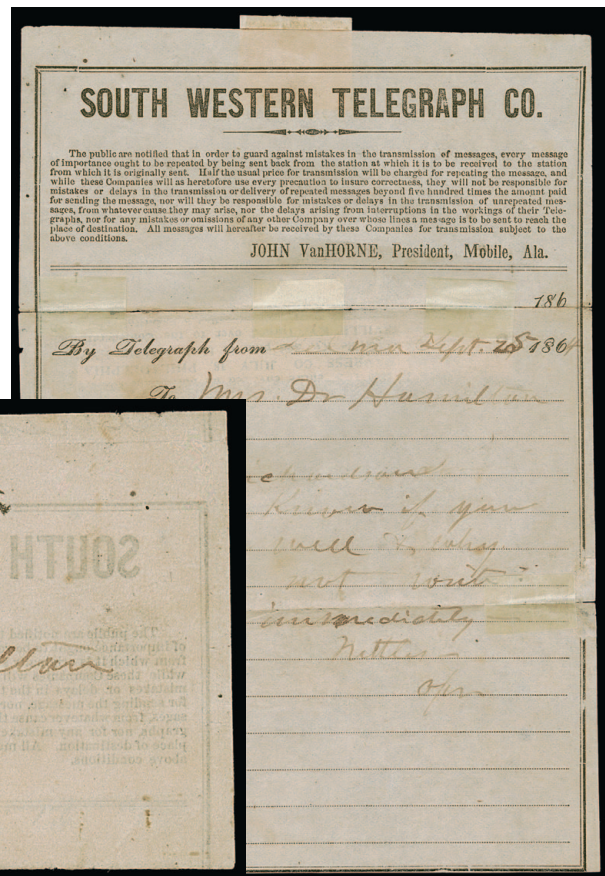 SOUTH WESTERN TELEGRAPH CO.
The public are notified that in order to guard against mistakes in the transmission of messages, every message
of importance ought to be repeated by being sent back from the station at which it is to be received to the station
from which it is originally sent. Half the usual price for transmission will be charged for repeating the message, and
while these Companies will as heretofore use every precaution to insure correctness, they will not be responsible for
mistakes or delays in the transmission or delivery of repeated messages beyond five hundred times the amount paid
for sending the message, nor will they be responsible for mistakes or delays in the transmission of unrepeated mes-
sages, from whatever cause they may arise, nor the delays arising from interruptions in the workings of their Tele-
graphs, nor for any mistakes or omissions of any other Company over whose lines a message is to be sent to reach the
place of destination. All messages will hereafter be received by these Companies for transmission subject to the
above conditions.
JOHN VanHORNE, President, Mobile, Ala.
186
By Telegraph from Sept. 25 1864
To Mrs. Dr Hamilton
Know if you
well & why
not write
immedidtely
SOUTH
The public are notified
of importance
from which it
while these Companies
mistakes or delays in the
for sending the message, nor
sages, from whatever cause
graphs, nor for any mistake
place of destination. All
above conditions.